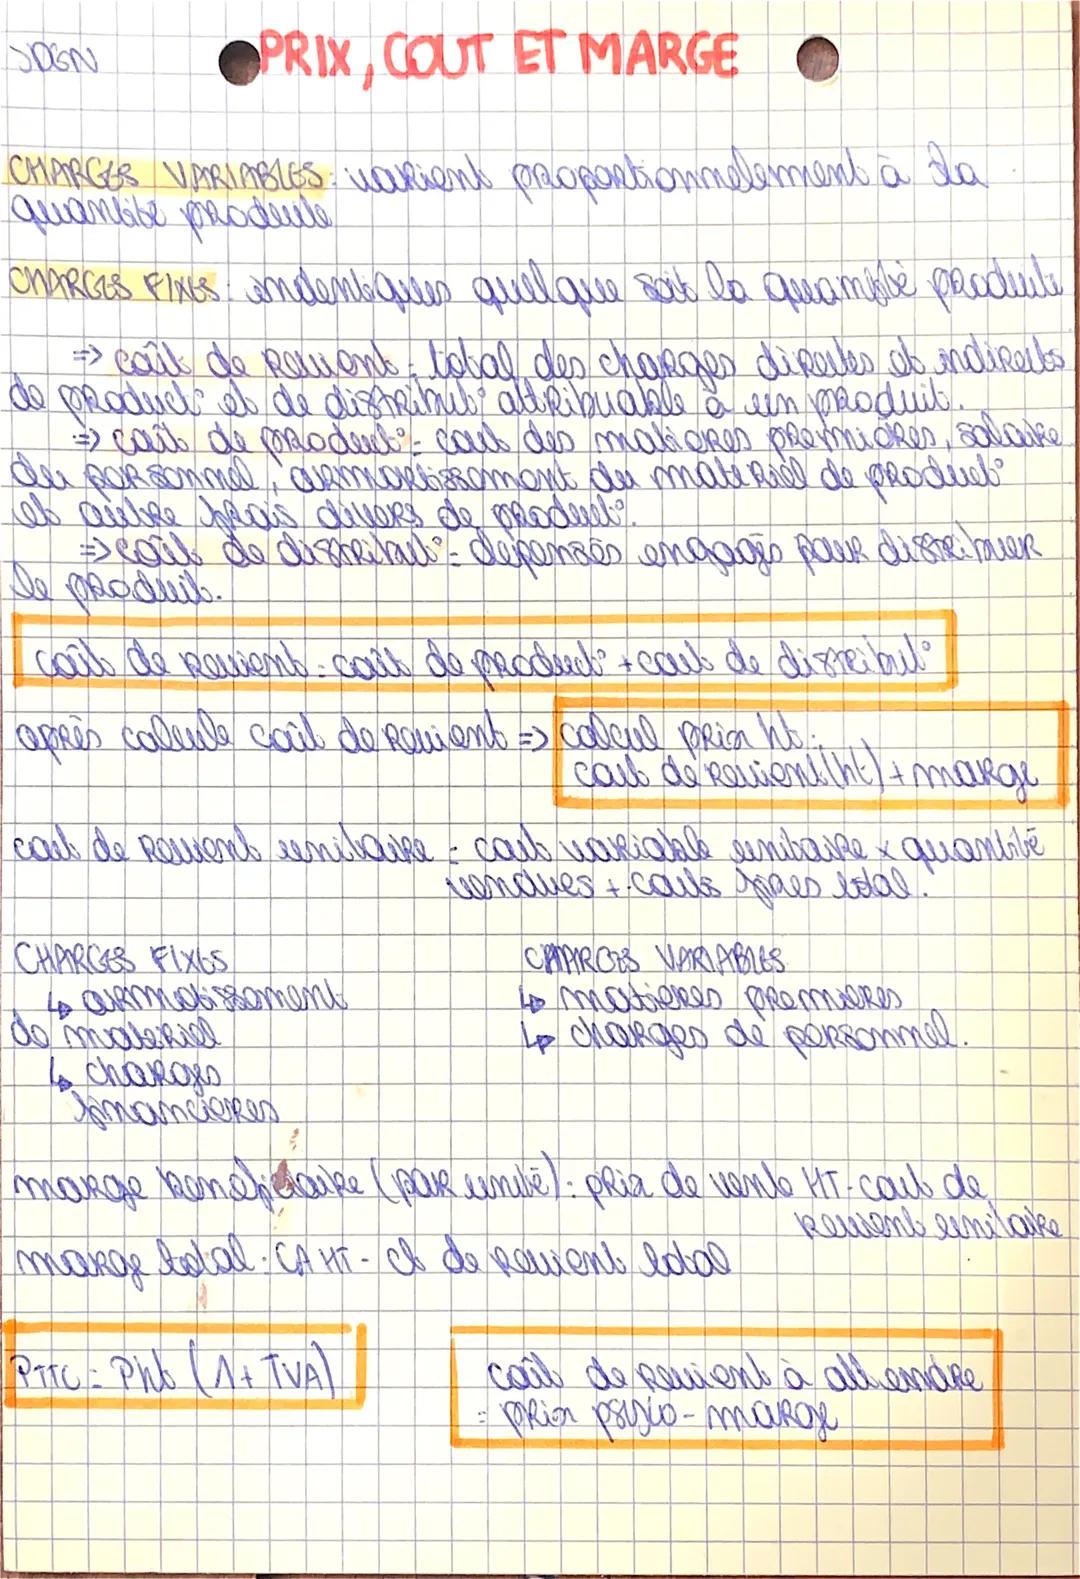 SDGN
PRIX, COUT ET MARGE
CHARGES VARIABLES: varient proportionnelement à la
quantité produite
CHARGES FIXES: indentiques quelque soit la quantité produite
=> coût de revient: total des charges directes et indirectes
de product° et de distribut° attribuable à un produit.
=> coût de product°= cout des matières premières, salaire
du personnel, armortissement du matériel de product°
et autre frais divers de product°.
=> coût de distribut°= dépenses engagés pour distribuer
le produit.
coût de revient = coût de product° + cout de distribut°
après calcule coût de revient => calcul prix ht:
cout de revient (ht) + marge
cout de revient unitaire = cout variable unitaire x quantité
vendues + couts fixes total.
CHARGES FIXES
↳ armotissement
de matériel
↳ charges
financières
CHARGES VARIABLES
↳ matières premières
↳ charges de personnel.
marge (par unité): prix de vente HT - cout de
revient unitaire
marge total: CA HT - ct de revient total
PTTC = Pht (1+TVA)
coût de revient à attendre
= prix psycho - marge